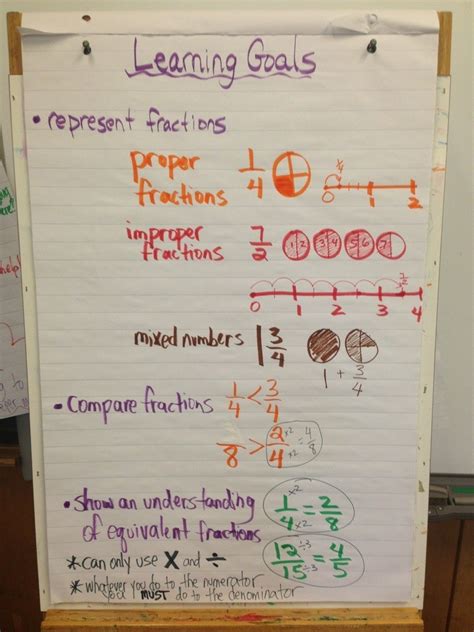 Learning Goals
• represent fractions
proper fractions 1/4
1/4
0 1 2
improper fractions 7/2 1 2 3 4 5 6 7
7/2
0 1 2 3 4
mixed numbers 1 3/4
1 + 3/4
• compare fractions 1/4 < 3/4
/8 > 2/4 x2 x2 = 4/8
• show an understanding
of equivalent fractions
1/4 x2 x2 = 2/8
12/15 ÷3 ÷3 = 4/5
* can only use X and ÷
* whatever you do to the numerator
you MUST do to the denominator
help!